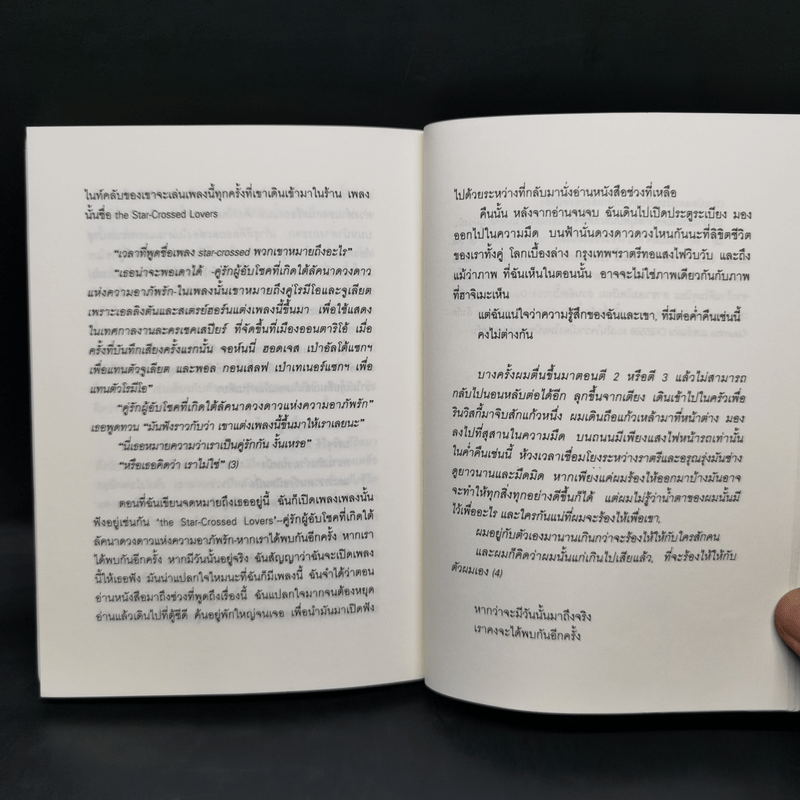 ไนท์คลับของเขาจะเล่นเพลงนี้ทุกครั้งที่เขาเดินเข้ามาในร้าน เพลง
นั้นชื่อ the Star-Crossed Lovers
“เวลาที่พูดชื่อเพลง star-crossed พวกเขาหมายถึงอะไร”
“เธอน่าจะพอเดาได้ -คู่รักผู้อับโชคที่เกิดใต้ลัคนาดวงดาว
แห่งความอาภัพรัก-ในเพลงนั้นเขาหมายถึงคู่โรมีโอและจูเลียต
เพราะเอลลิงตันและสเตรย์ฮอร์นแต่งเพลงนี้ขึ้นมา เพื่อใช้แสดง
ในเทศกาลงานละครเชคสเปียร์ ที่จัดขึ้นที่เมืองออนตาริโอ้ เมื่อ
ครั้งที่บันทึกเสียงครั้งแรกนั้น จอห์นนี่ ฮอดเจส เป่าอัลโต้แซกฯ
เพื่อแทนตัวจูเลียต และพอล กอนเสลฟ เป่าเทเนอร์แซกฯ เพื่อ
แทนตัวโรมีโอ”
“คู่รักผู้อับโชคที่เกิดใต้ลัคนาดวงดาวแห่งความอาภัพรัก”
เธอพูดทวน “มันฟังราวกับว่า เขาแต่งเพลงนี้ขึ้นมาให้เราเลยนะ”
“นี่เธอหมายความว่าเราเป็นคู่รักกัน งั้นเหรอ”
“หรือเธอคิดว่า เราไม่ใช่” (3)
ตอนที่ฉันเขียนจดหมายถึงเธออยู่นี้ ฉันก็เปิดเพลงเพลงนั้น
ฟังอยู่เช่นกัน ‘the Star-Crossed Lovers’-คู่รักผู้อับโชคที่เกิดใต้
ลัคนาดวงดาวแห่งความอาภัพรัก-หากเราได้พบกันอีกครั้ง หากเรา
ได้พบกันอีกครั้ง หากมีวันนั้นอยู่จริง ฉันสัญญาว่าฉันจะเปิดเพลง
นี้ให้เธอฟัง มันน่าแปลกใจไหมนะที่ฉันก็มีเพลงนี้ ฉันจำได้ว่าตอน
อ่านหนังสือมาถึงช่วงที่พูดถึงเรื่องนี้ ฉันแปลกใจมากจนต้องหยุด
อ่านแล้วเดินไปที่ตู้ซีดี ค้นอยู่พักใหญ่จนเจอ เพื่อนำมันมาเปิดฟัง
ไปด้วยระหว่างที่กลับมานั่งอ่านหนังสือช่วงที่เหลือ
คืนนั้น หลังจากอ่านจนจบ ฉันเดินไปเปิดประตูระเบียง มอง
ออกไปในความมืด บนฟ้านั่นดวงดาวดวงไหนกันนะที่ลิขิตชีวิต
ของเราทั้งคู่ โลกเบื้องล่าง กรุงเทพฯราตรีทอแสงไฟวิบวับ และถึง
แม้ว่าภาพ ที่ฉันเห็นในตอนนั้น อาจจะไม่ใช่ภาพเดียวกันกับภาพ
ที่ฮาจิเมะเห็น
แต่ฉันแน่ใจว่าความรู้สึกของฉันและเขา, ที่มีต่อค่ำคืนเช่นนี้
คงไม่ต่างกัน
บางครั้งผมตื่นขึ้นมาตอนตี 2 หรือตี 3 แล้วไม่สามารถ
กลับไปนอนหลับต่อได้อีก ลุกขึ้นจากเตียง เดินเข้าไปในครัวเพื่อ
รินวิสกี้มาจิบสักแก้วหนึ่ง ผมเดินถือแก้วเหล้ามาที่หน้าต่าง มอง
ลงไปที่สุสานในความมืด บนถนนมีเพียงแสงไฟหน้ารถเท่านั้น
ในค่ำคืนเช่นนี้ ห้วงเวลาเชื่อมโยงระหว่างราตรีและอรุณรุ่งมันช่าง
ดูยาวนานและมืดมิด หากเพียงแค่ผมร้องไห้ออกมาบ้างมันอาจ
จะทำให้ทุกสิ่งทุกอย่างดีขึ้นก็ได้ แต่ผมไม่รู้ว่าน้ำตาของผมนั้นมี
ไว้เพื่ออะไร และใครกันแน่ที่ผมจะร้องไห้เพื่อเขา,
ผมอยู่กับตัวเองมานานเกินกว่าจะร้องไห้ให้กับใครสักคน
และผมก็คิดว่าผมนั้นแก่เกินไปเสียแล้ว, ที่จะร้องไห้ให้กับ
ตัวผมเอง (4)
หากว่าจะมีวันนั้นมาถึงจริง
เราคงจะได้พบกันอีกครั้ง